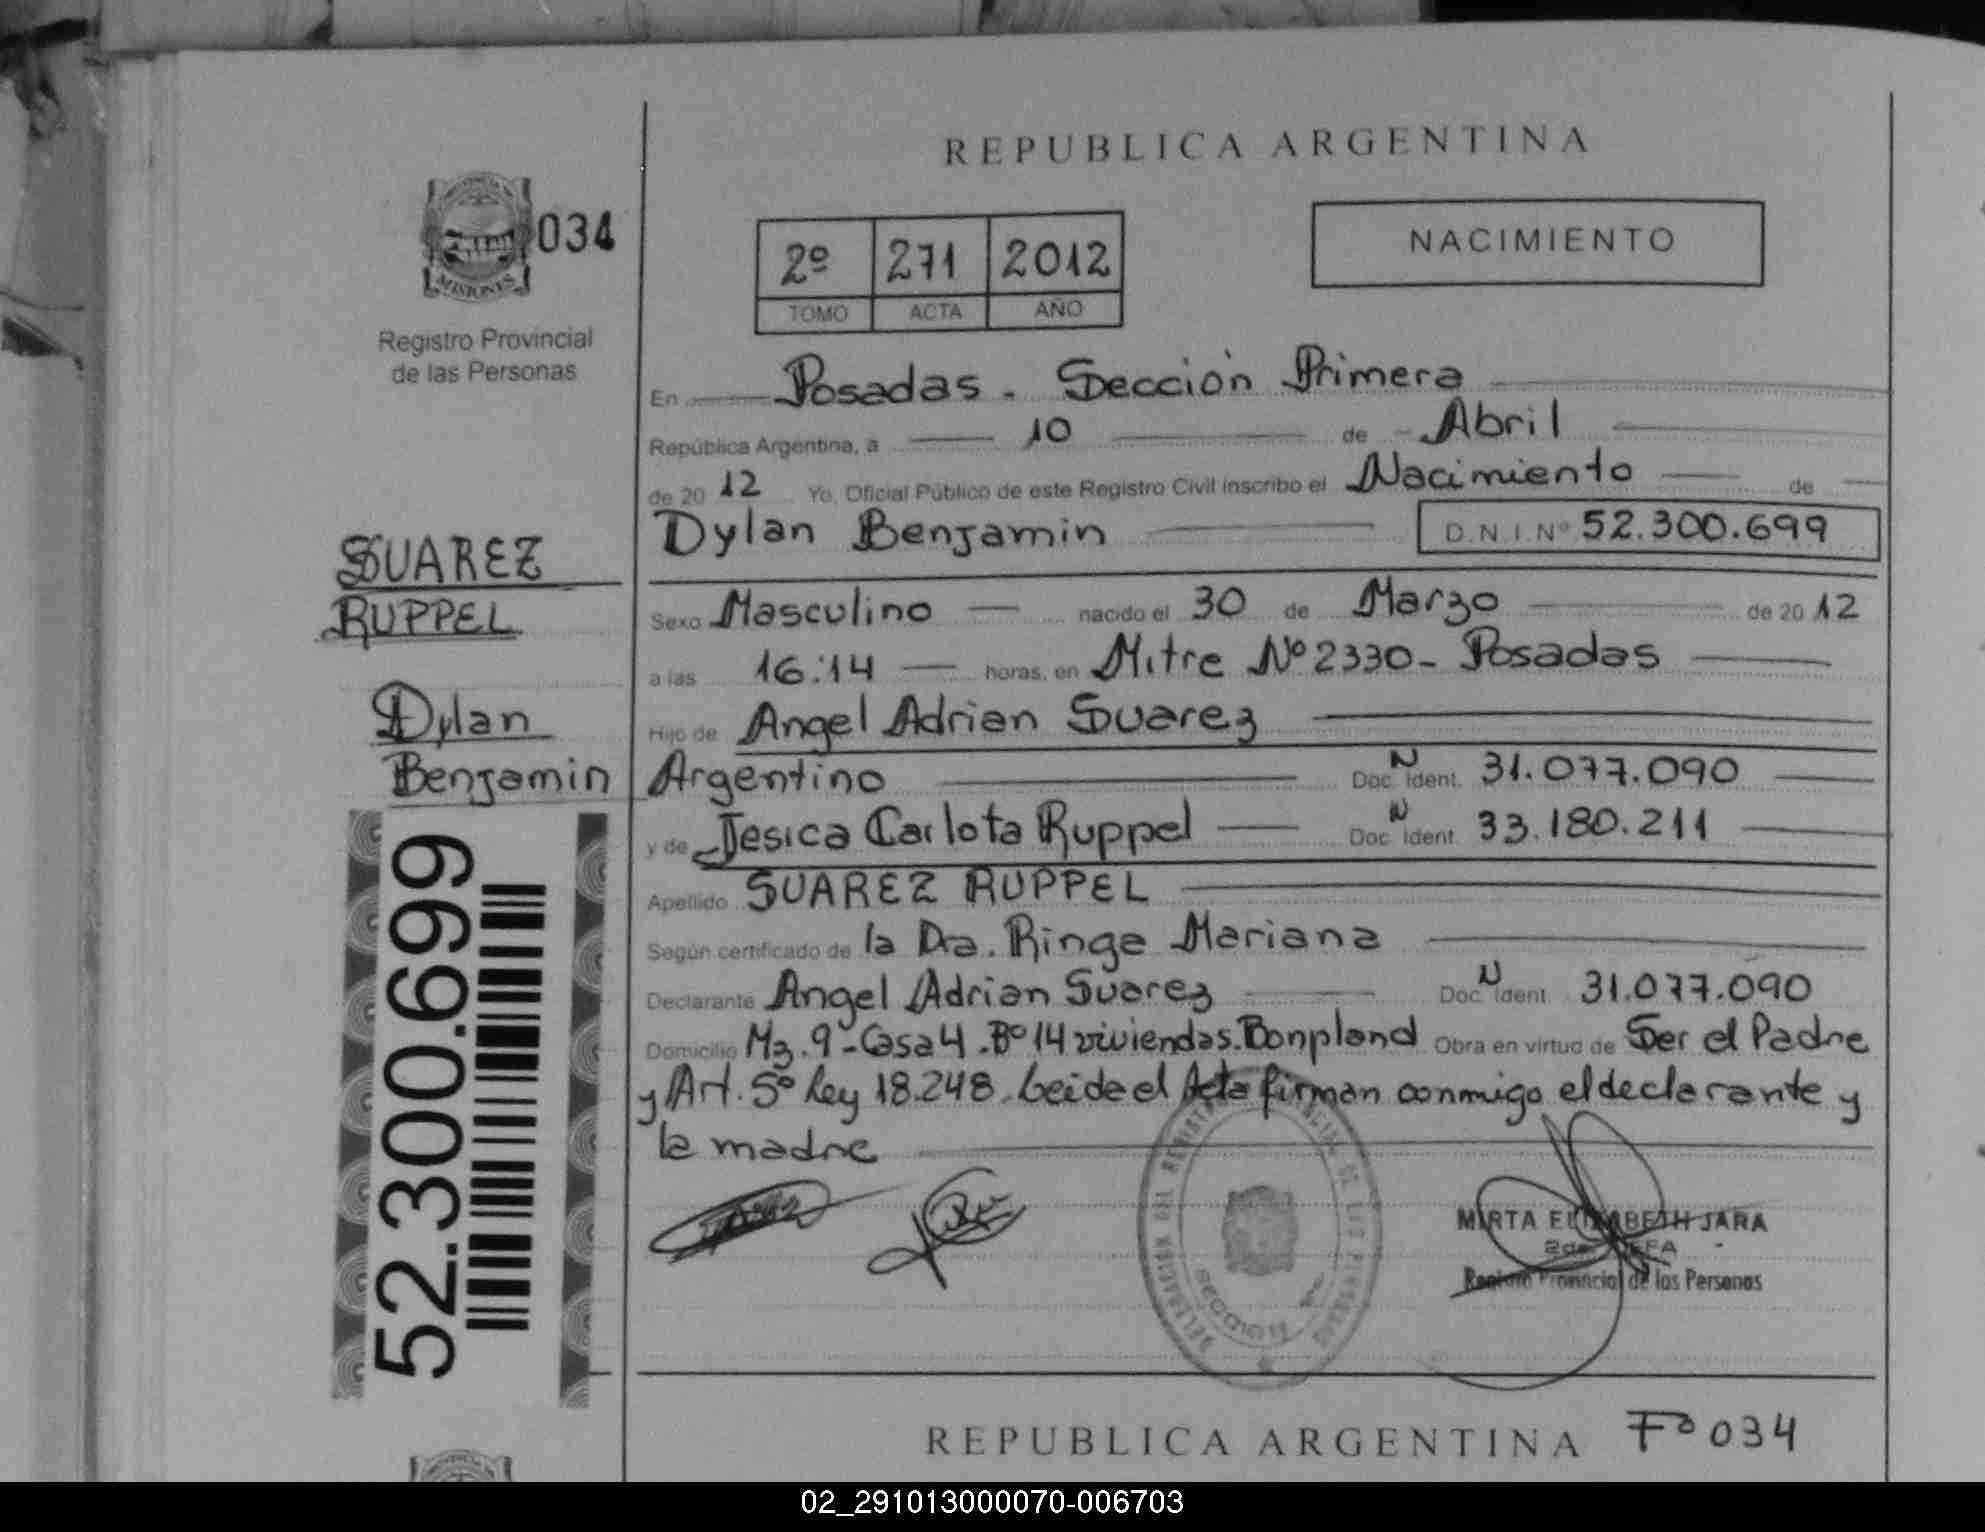 REPUBLICA ARGENTINA
034
MISIONES
Registro Provincial
de las Personas
2º 271 2012
TOMO ACTA AÑO
NACIMIENTO
En Posadas. Sección Primera
República Argentina, a 10 de Abril
de 20 12 Yo, Oficial Público de este Registro Civil inscribo el Nacimiento de
Dylan Benjamin D.N.I.Nº 52.300.699
SUAREZ
RUPPEL
Dylan
Benjamin
52.300.699
Sexo Masculino nacido el 30 de Marzo de 20 12
a las 16:14 horas, en Mitre Nº 2330- Posadas
Hijo de Angel Adrian Suarez
Argentino Doc. Ident. N 31.077.090
y de Jesica Carlota Ruppel Doc. Ident. N 33.180.211
Apellido SUAREZ RUPPEL
Según certificado de la Dra. Ringa Mariana
Declarante Angel Adrian Suarez Doc. Ident. N 31.077.090
Domicilio Mz. 9 - Casa 4 . Bº 14 viviendas. Bonpland Obra en virtud de Ser el Padre
y Art. 5º Ley 18.248. Leida el Acta firman conmigo el declarante y
la madre
MIRTA ELIZABETH JARA
2da. JEFA
Registro Provincial de las Personas
REPUBLICA ARGENTINA Fº 034
02_291013000070-006703